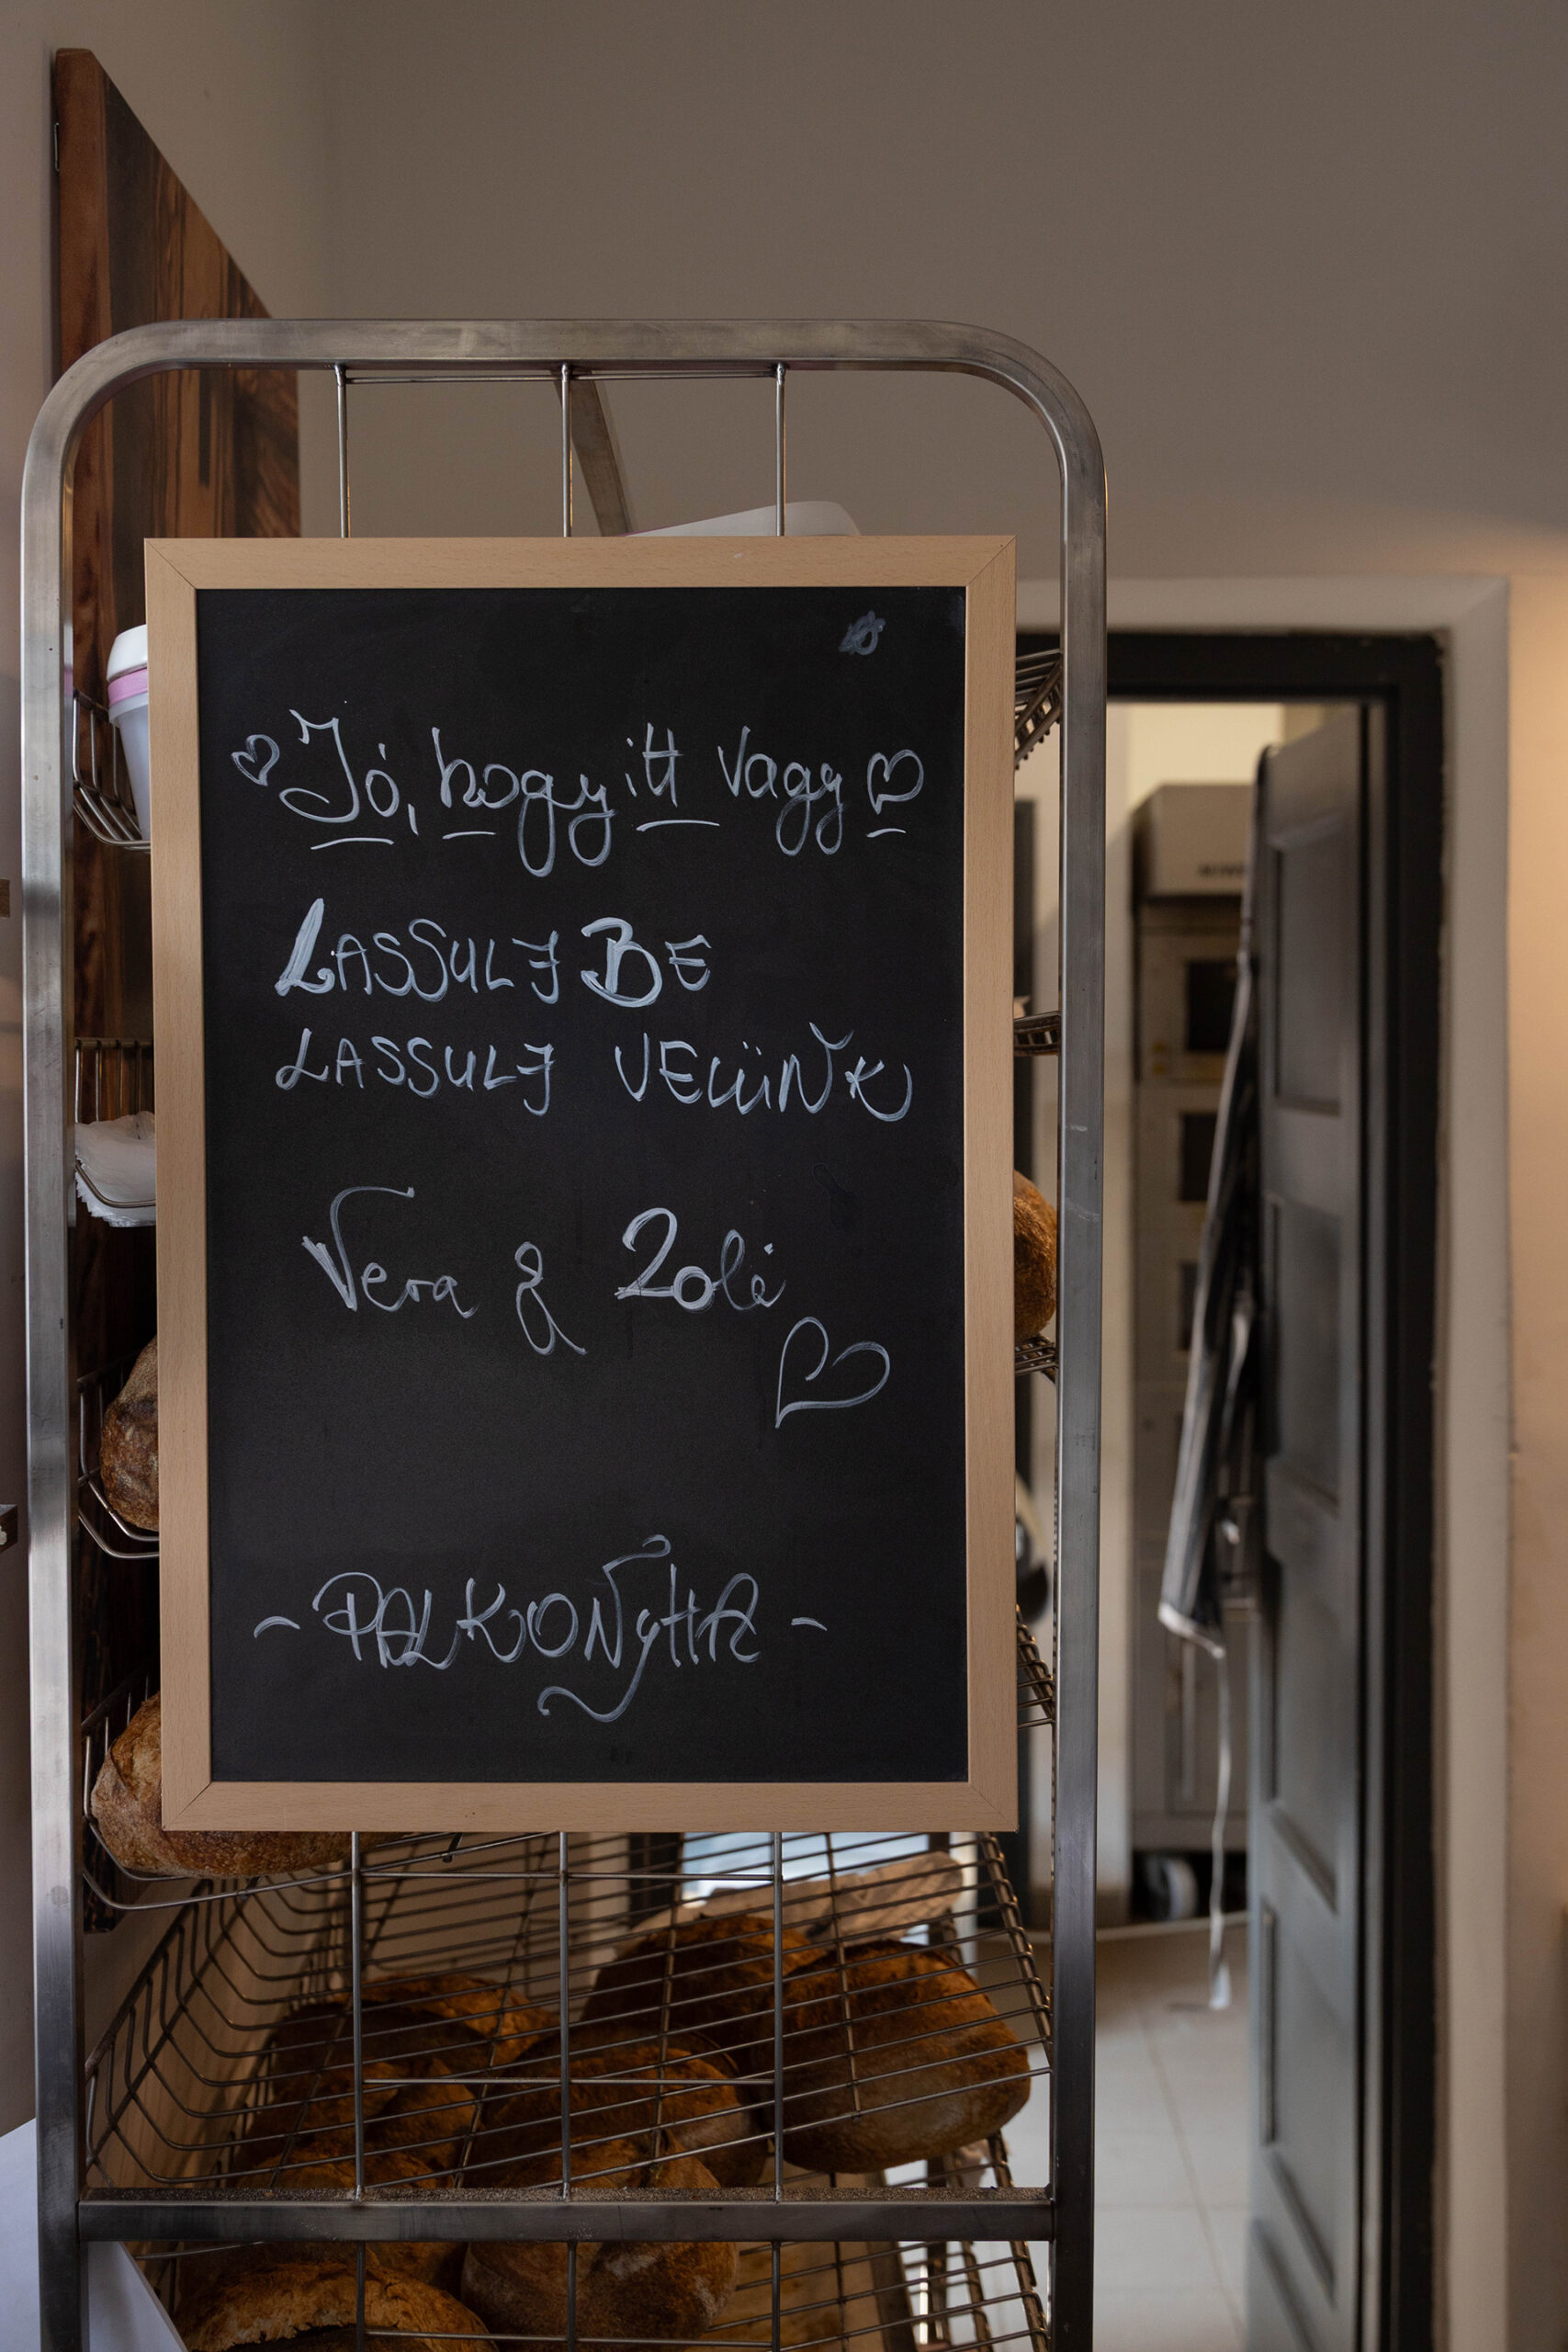 ♡ Jó, hogy itt vagy ♡
LASSULJ BE
LASSULJ VELÜNK
Vera & Zoli
♡
~ PALKONYHA ~